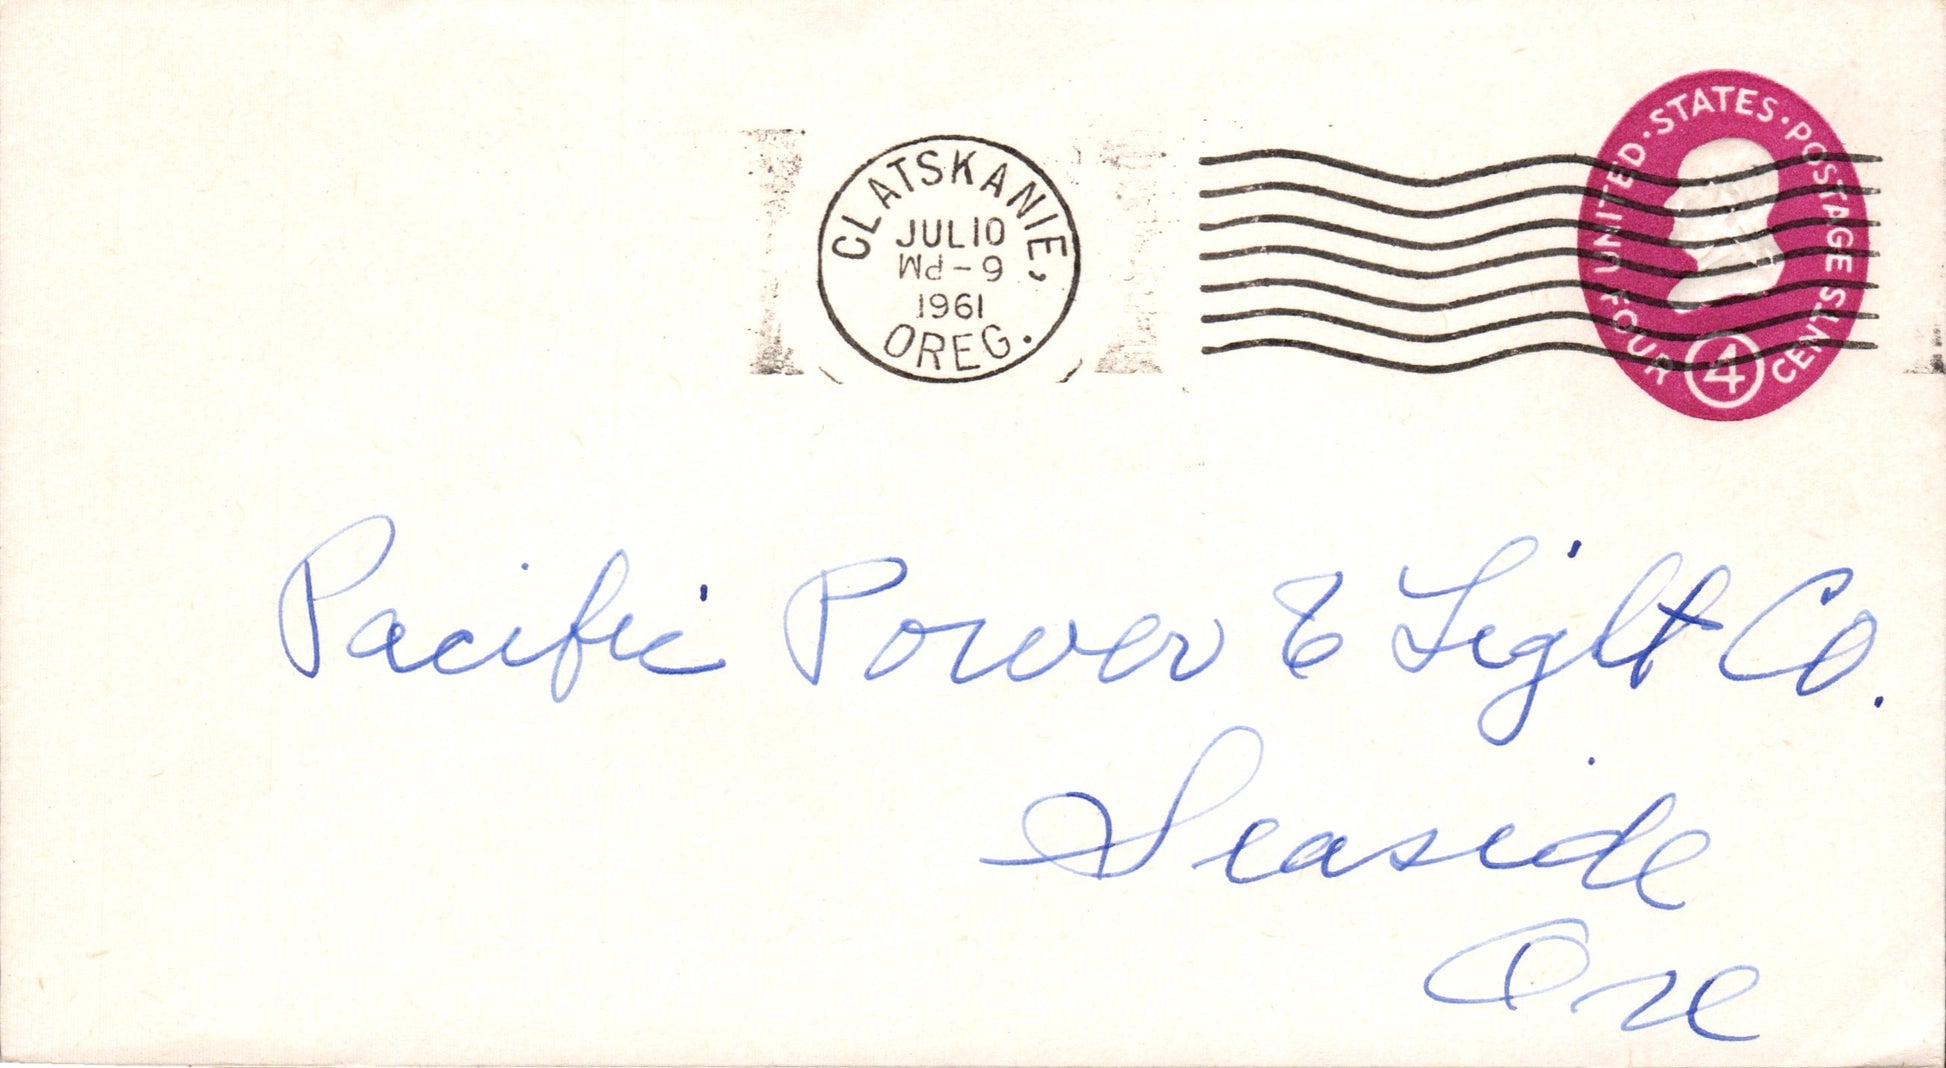 CLATSKANIE,
JUL 10
6-PM
1961
OREG.
UNITED·STATES·POSTAGE
FOUR 4 CENTS
Pacific Power & Light Co.
Seaside
Ore